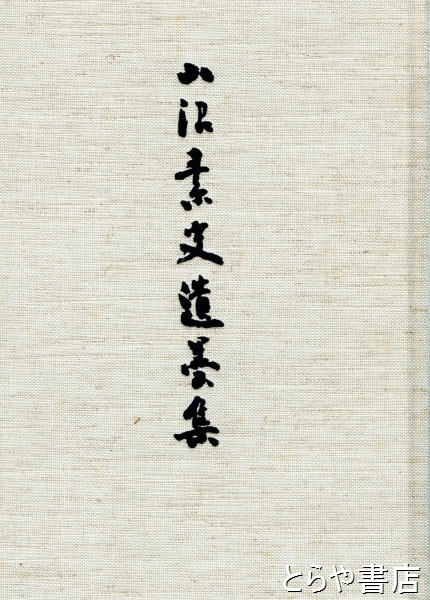 小沼素史遺墨集
とらや書店